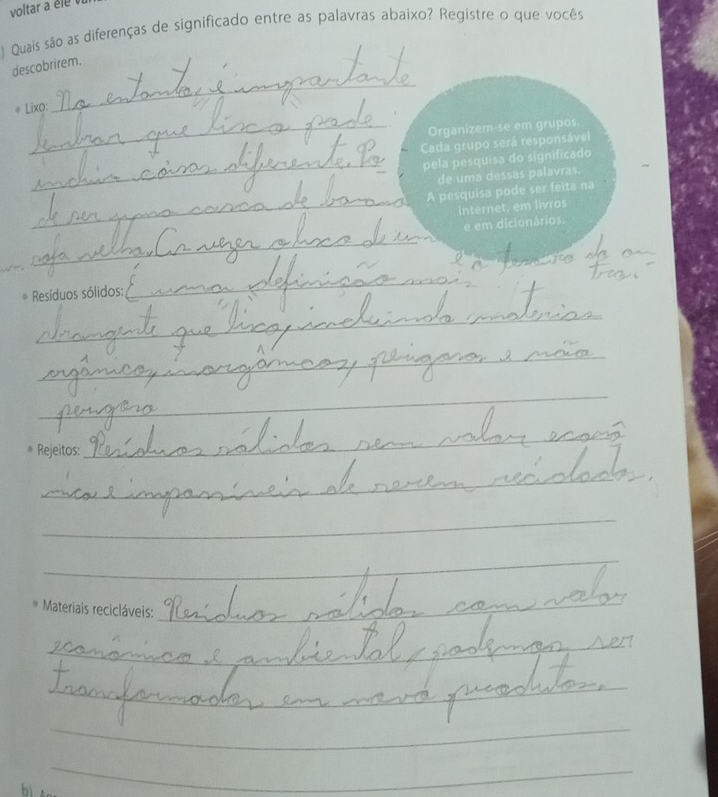 voltar a ele
) Quais são as diferenças de significado entre as palavras abaixo? Registre o que vocês
descobrirem.
• Lixo: No entanto, é importante
lembrar que lixo pode
incluir coisas diferente. Po
de ser uma casca de banana
sofa velha. Às vezes o lixo de um
é o tesouro do ou
tro.
Organizem-se em grupos.
Cada grupo será responsável
pela pesquisa do significado
de uma dessas palavras.
A pesquisa pode ser feita na
internet, em livros
e em dicionários.
• Resíduos sólidos: É uma definição mais
abrangente que "lixo", incluindo materias
orgânicos, inorgânicos, perigosos e não
perigoso
• Rejeitos: Resíduos sólidos sem valor econô
mico e impossíveis de serem reciclados.
• Materiais recicláveis: Resíduos sólidos com valor
econômico e ambiental, podemos ser
transformados em novo produtos.
b)